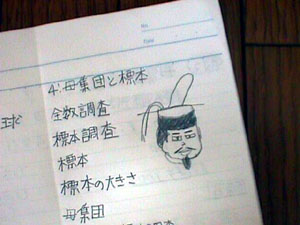 No.
Date
4. 母集団と標本
全数調査
標本調査
標本
標本の大きさ
母集団
球